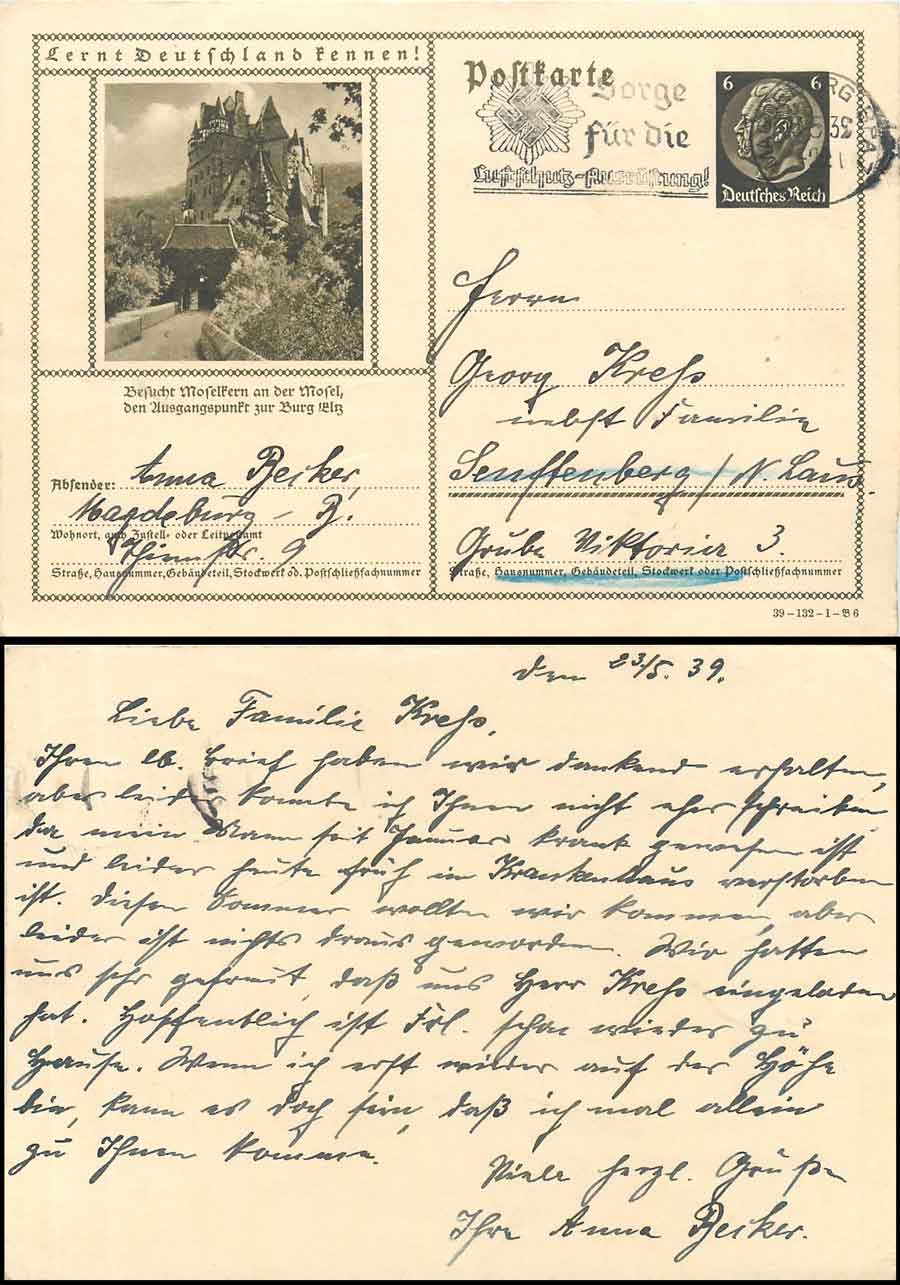 Lernt Deutschland kennen!
Besucht Moselkern an der Mosel,
den Ausgangspunkt zur Burg Eltz
Absender: Anna Becker,
Magdeburg - B.
Wohnort, auch Zustell- oder Leitpostamt
9
Straße, Hausnummer, Gebäudeteil, Stockwerk od. Postschließfachnummer
Postkarte
Sorge
für die
Luftschutz-Ausrüstung!
6 6
Deutsches Reich
Herrn
Georg Kreß
nebst Familie
Senftenberg / N. Laus.
Grube Viktoria 3.
Straße, Hausnummer, Gebäudeteil, Stockwerk oder Postschließfachnummer
39-132-1-B 6
den 23./5. 39.
Liebe Familie Kreß,
Ihren lb. Brief haben wir dankend erhalten,
aber leider konnte ich Ihnen nicht eher schreiben,
da mein Mann seit Januar krank gewesen ist
und leider heute früh im Krankenhaus verstorben
ist. Diesen Sommer wollten wir kommen, aber
leider ist nichts draus geworden. Wir hatten
uns sehr gefreut, daß uns Herr Kreß eingeladen
hat. Hoffentlich ist Frl. schon wieder zu
Hause. Wenn ich erst wieder auf der Höhe
bin, kann es doch sein, daß ich mal allein
zu Ihnen komme.
Viele herzl. Grüße
Ihre Anna Becker.